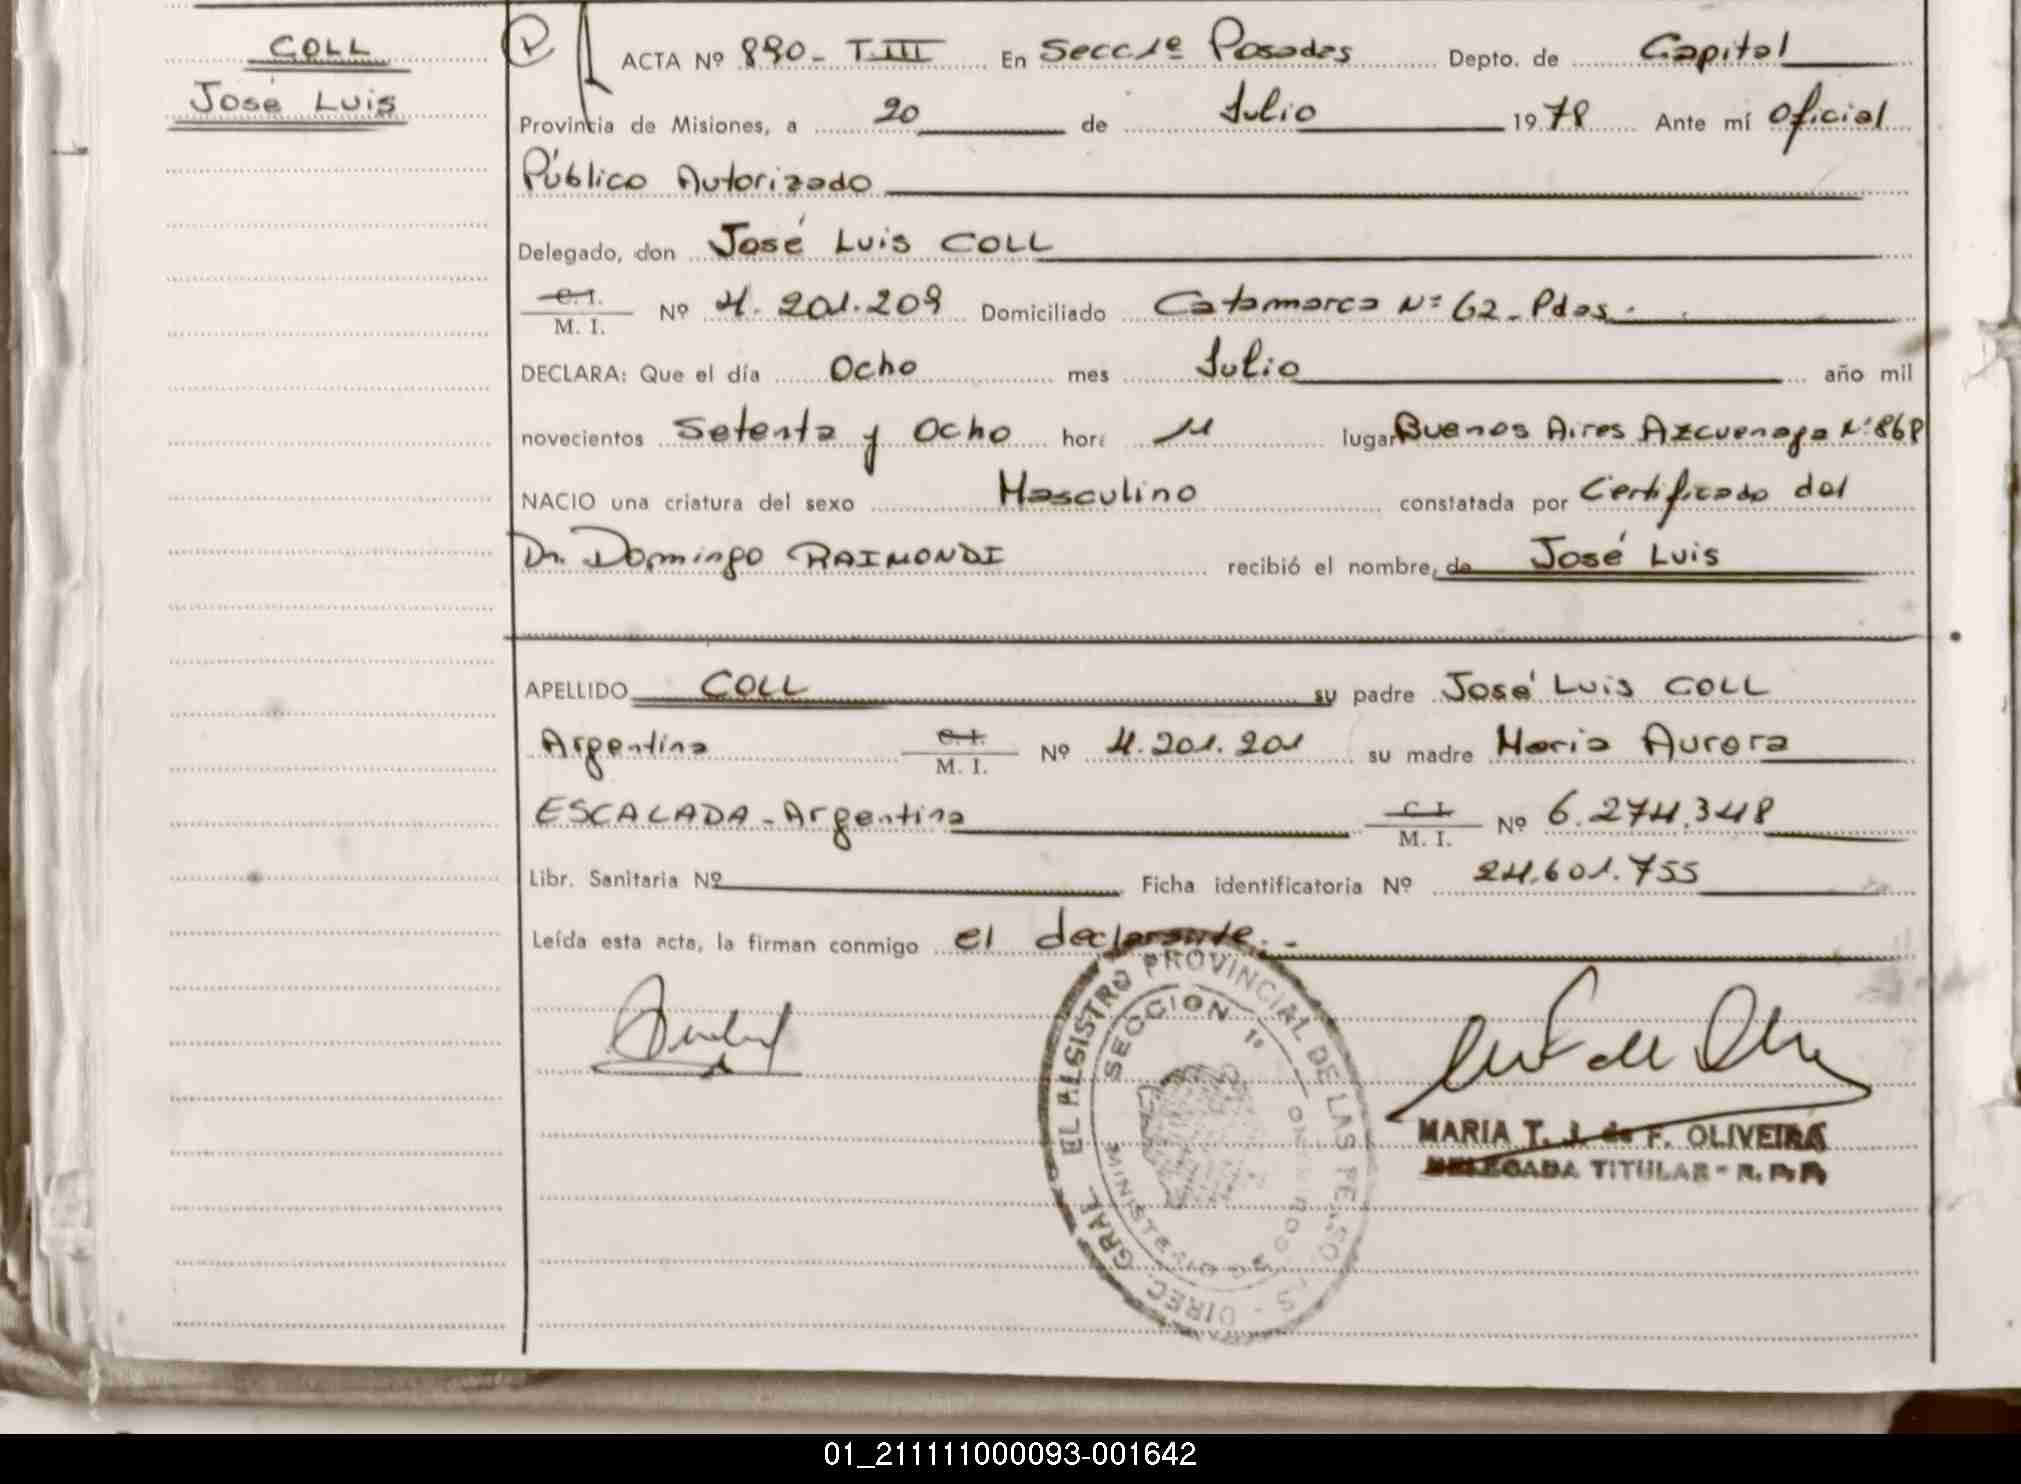 COLL
José Luis
ACTA Nº 890- T.III En Secc 1ª Posadas Depto. de Capital
Provincia de Misiones, a 20 de Julio 1978 Ante mí Oficial
Público Autorizado
Delegado, don José Luis COLL
C. I.
M. I. Nº 4.201.209 Domiciliado Catamarca Nº 62- Pdas.
DECLARA: Que el día Ocho mes Julio año mil
novecientos Setenta y Ocho hora 11 lugar Buenos Aires Azcuenaga Nº 868
NACIO una criatura del sexo Masculino constatada por Certificado del
Dr. Domingo RAIMONDI recibió el nombre de José Luis
APELLIDO COLL su padre José Luis COLL
Argentino C. I. M. I. Nº 4.201.201 su madre Maria Aurora
ESCALADA - Argentina C. I. M. I. Nº 6.274.348
Libr. Sanitaria Nº Ficha identificatoria Nº 24.601.755
Leída esta acta, la firman conmigo el declarante.-
DIREC. GRAL. EL REGISTRO PROVINCIAL DE LAS PERSONAS
SECCION 1º
MINISTERIO DE GOBIERNO
MARIA T. J. de F. OLIVEIRA
DELEGADA TITULAR - R. P. P.
01_211111000093-001642